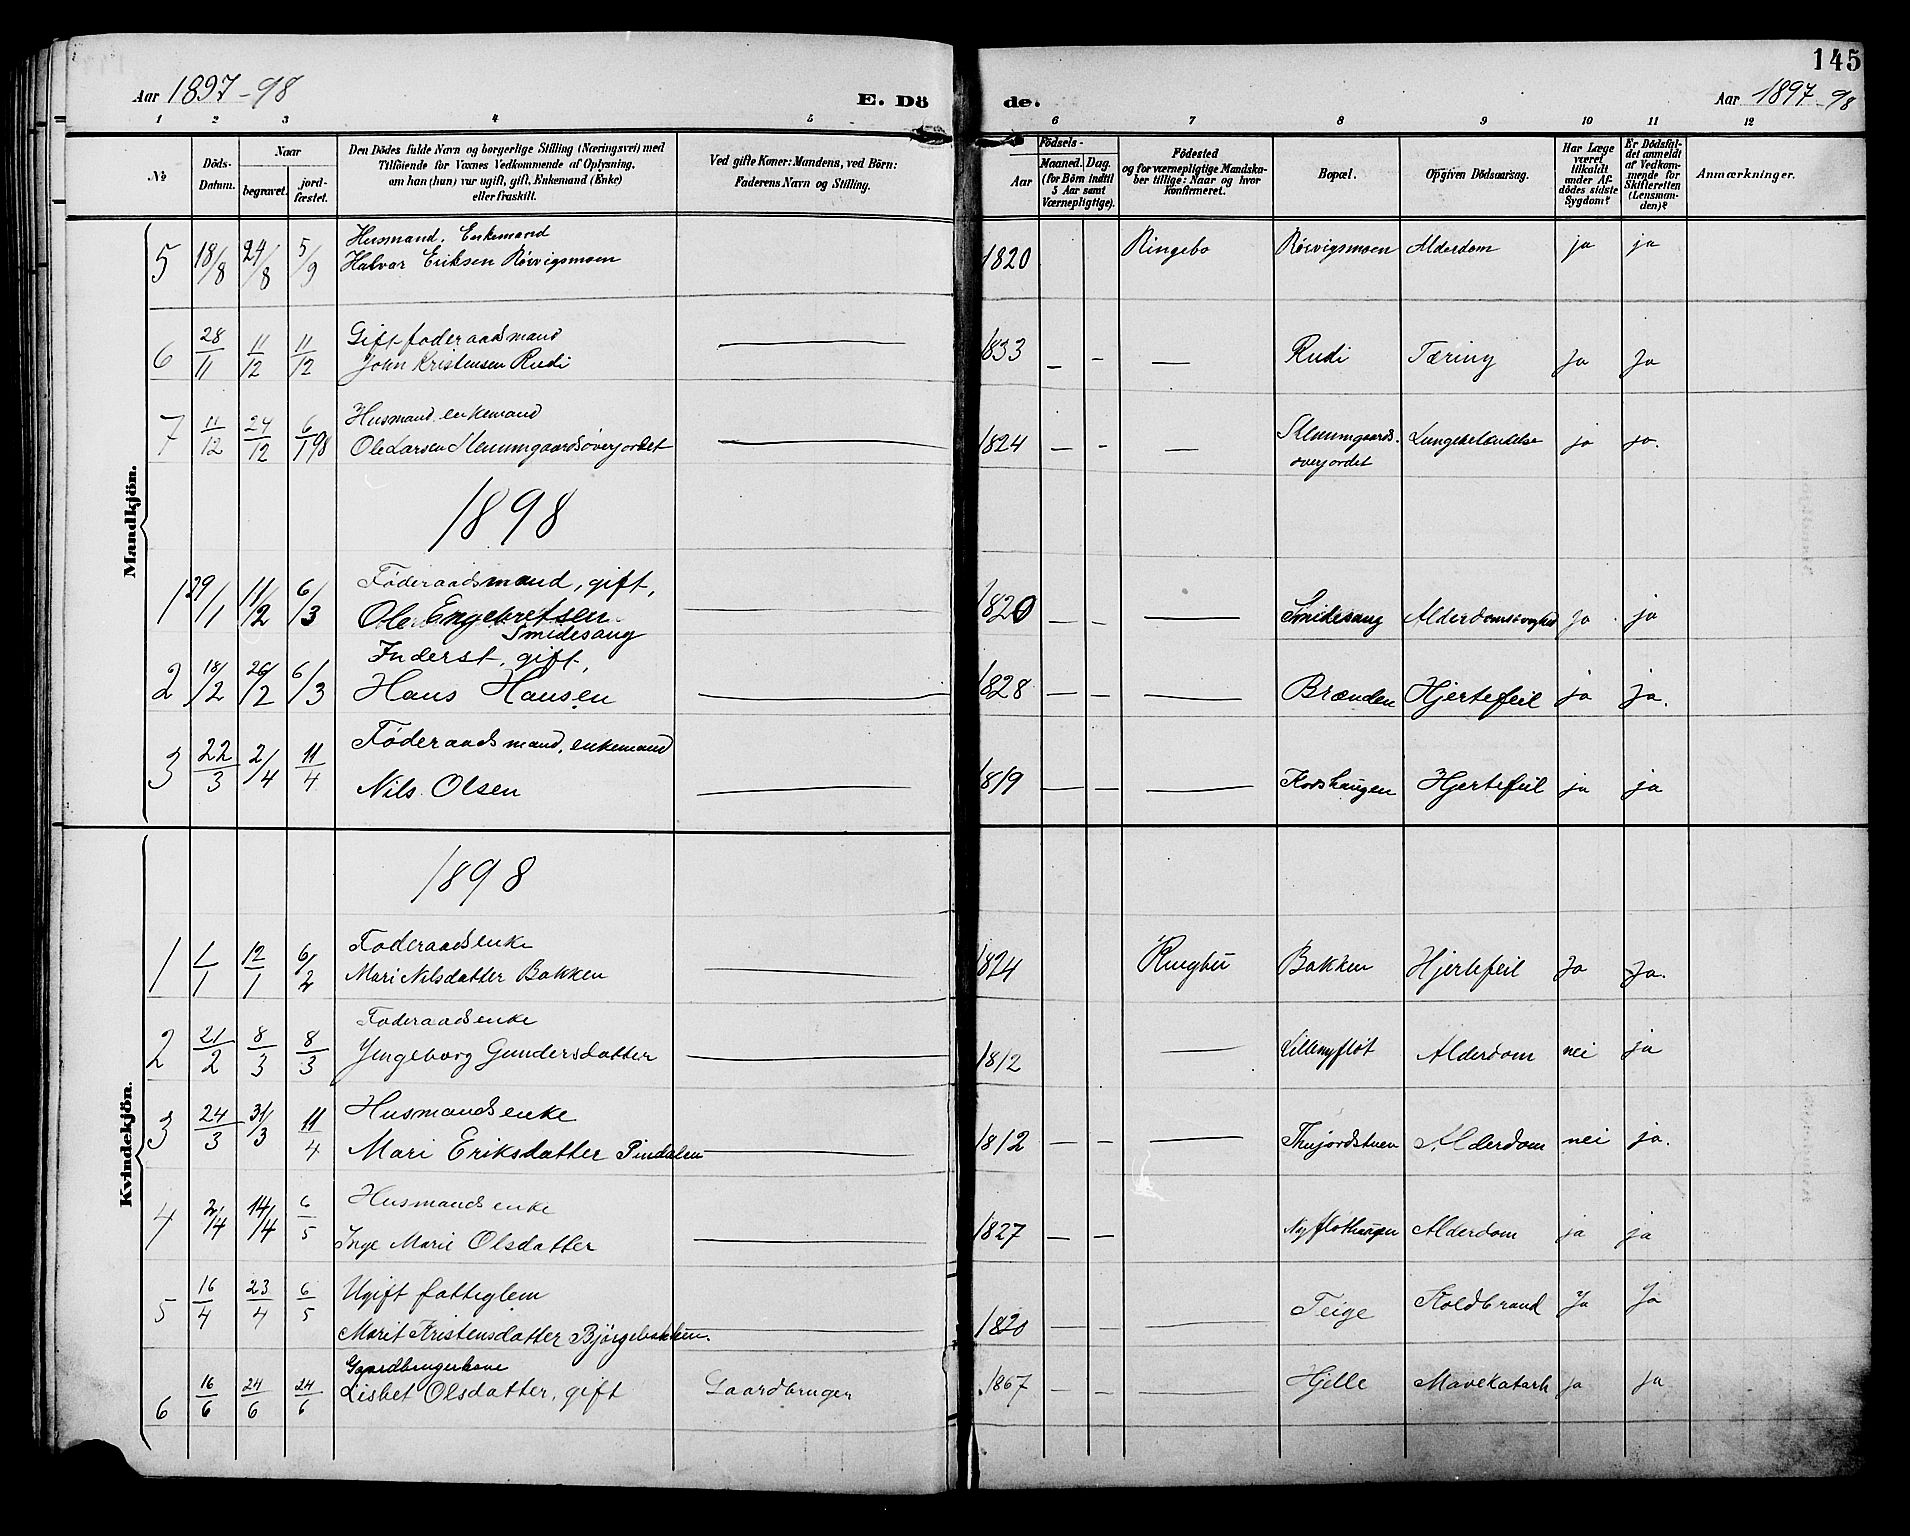 145
Aar 1897-98
E. Dö de.
Aar 1897-98
1 2 3 4 5 6 7 8 9 10 11 12
No
Döds-Datum.
Naar
begravet.
jord-fæstet.
Den Dödes fulde Navn og borgerlige Stilling (Næringsvei) med
Tilföiende for Voxnes Vedkommende af Oplysning,
om han (hun) var ugift, gift, Enkemand (Enke)
eller fraskilt.
Ved gifte Koner: Mandens, ved Börn:
Faderens Navn og Stilling.
Födsels-
Aar
Maaned. Dag.
(for Börn indtil
5 Aar samt
Værnepligtige).
Födested
og for værnepligtige Mandska-
ber tillige: Naar og hvor
Konfirmeret.
Bopæl.
Opgiven Dödsaarsag.
Har Læge
været
tilkaldt
under Af-
dödes sidste
Sygdom?
Er Dödsfal-
det anmeldt
af Vedkom-
mende for
Skifteretten
(Lensman-
den)?
Anmærkninger.
Mandkjön.
Husmand. Enkemand
5 18/8 24/8 5/9 Halvor Eriksen Rörvigsmoen 1820 Ringebo Rörvigsmoen Alderdom ja ja
Gift foderaadsmand
6 28/11 11/12 11/12 John Kristensen Rudi — 1833 — — — Rudi Tæring Ja Ja
Husmand, enkemand
7 11/12 24/12 6/1 98 Ole Larsen Klemmgaardsöverjordet — 1824 — — — Klemmgaards-
överjordet Lungebetændelse ja ja.
1898
Föderaadsmand, gift,
1 29/1 11/2 6/3 Ole Engebretsen — 1820 — — — Smidesang Alderdomssvaghed Ja ja
Smidesang
Inderst, gift,
2 18/2 26/2 6/3 Hans Hansen — 1828 — — — Brænden Hjertefeil ja ja.
Föderaadsmand, enkemand
3 22/3 2/4 11/4 Nils Olsen — 1819 — — — Korshaugen Hjertefeil ja ja
Kvindekjön.
1898
Foderaadsenke
1 1/1 12/1 6/2 Mari Nilsdatter Bakken — 1824 Ringbu Bakken Hjertefeil Ja Ja.
Foderaadsenke
2 21/2 8/3 8/3 Yngeborg Gundersdatter — 1812 — Lillenyflöt Alderdom nei ja
Husmandsenke
3 24/3 31/3 11/4 Mari Eriksdatter Pindalen — 1812 — — — Thujordstuen Alderdom nei ja.
Husmandsenke
4 2/4 14/4 6/5 Inge Marie Olsdatter — 1827 — — — Nyflothaugen Alderdom ja ja
Ugift fattiglem
5 16/4 23/4 6/5 Marit Kristensdatter Björgebakken. — 1820 — — — Teige Koldbrand Ja Ja
Gaardbrugerkone
6 16/6 24/6 24/6 Lisbet Olsdatter, gift Gaardbruger 1867 — — — Hjelle Mavekatarh ja ja